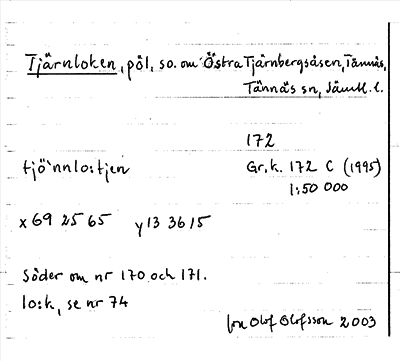 Tjärnloken, pöl, so. om Östra Tjärnbergsåsen, Tännäs,
Tännäs sn, Jämtl. l.
172
tjö`nnlo:tjen
Gr.k. 172 C (1995)
1:50 000
x 69 25 65 y 13 36 15
Söder om nr 170 och 171.
lo:k, se nr 74
Jon Olof Olofsson 2003